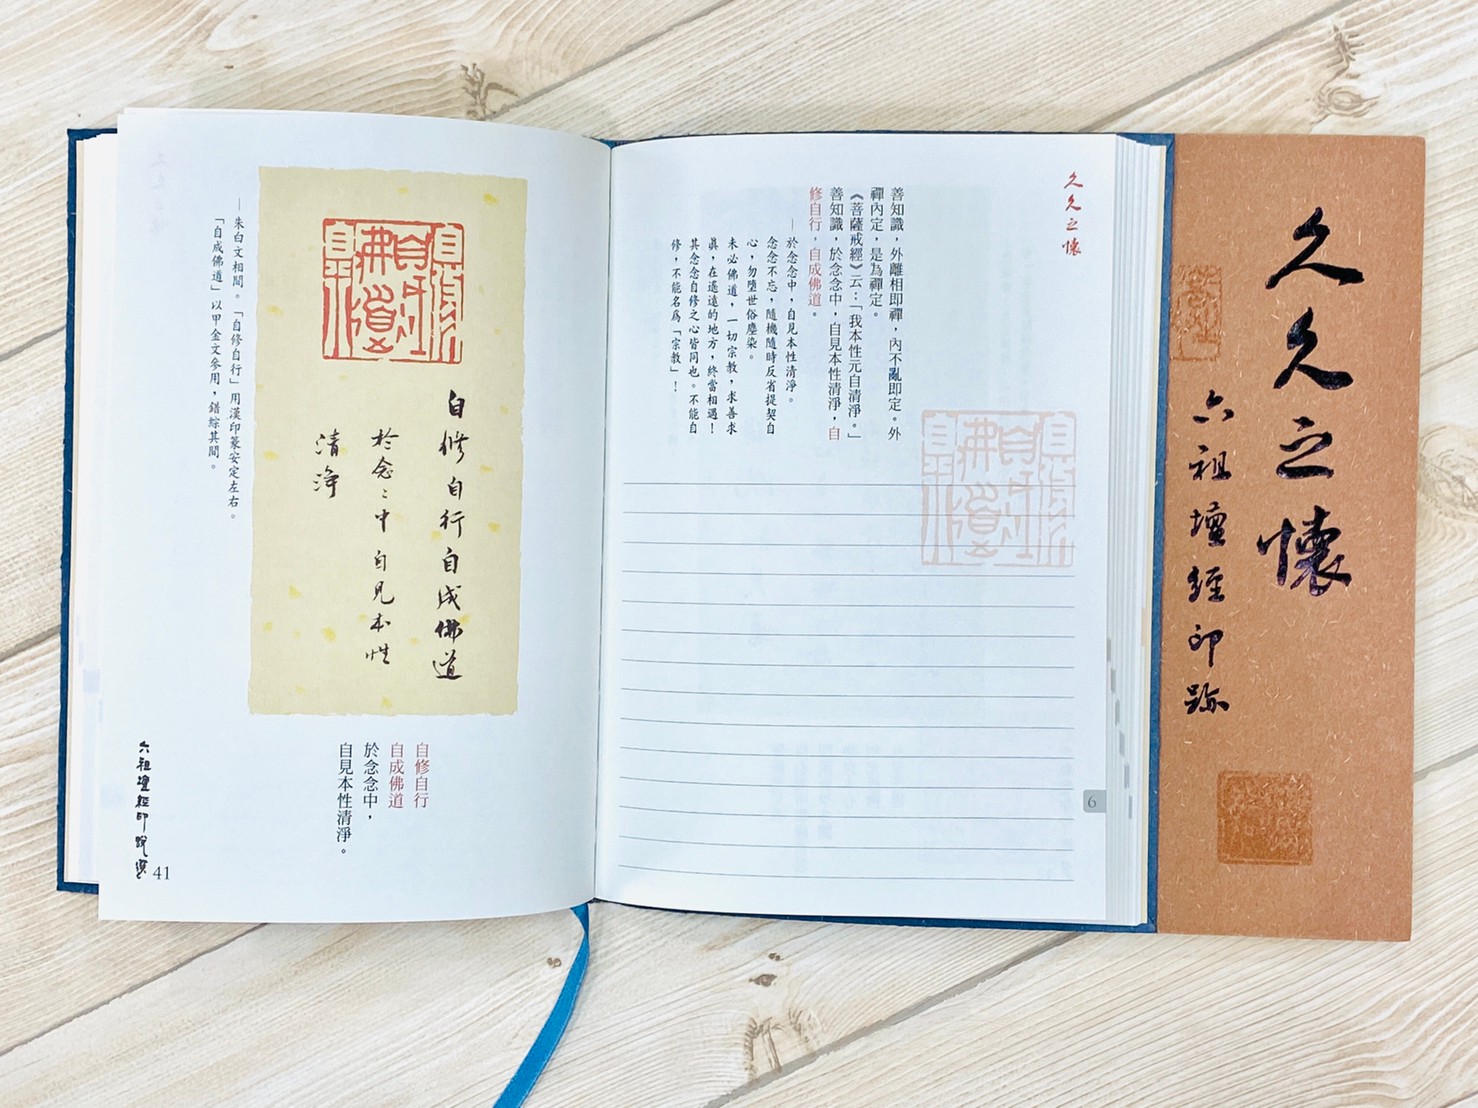 久久之懷
六祖壇經印跡
久久之懷
善知識，外離相即禪，內不亂即定。外
禪內定，是為禪定。
《菩薩戒經》云：「我本性元自清淨。」
善知識，於念念中，自見本性清淨，自
修自行，自成佛道。
—於念念中，自見本性清淨。
念念不忘，隨機隨時反省提契自
心，勿墮世俗塵染。
未必佛道，一切宗教，求善求
真，在遙遠的地方，終當相遇！
其念念自修之心皆同也。不能自
修，不能名為「宗教」！
6
自修自行自成佛道
自修自行自成佛道
於念〻中自見本性
清淨
自修自行
自成佛道
於念念中，
自見本性清淨。
—朱白文相間。「自修自行」用漢印篆安定左右。
「自成佛道」以甲金文參用，錯綜其間。
41